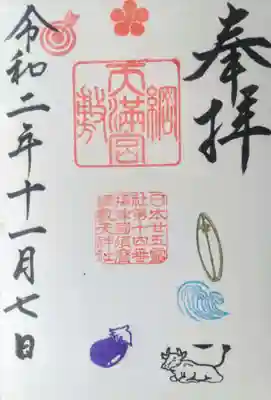 奉拝
綱敷
天満宮
日本廿五霊
社第十四番
摂津國須磨
綱敷天神社
令和二年十一月七日